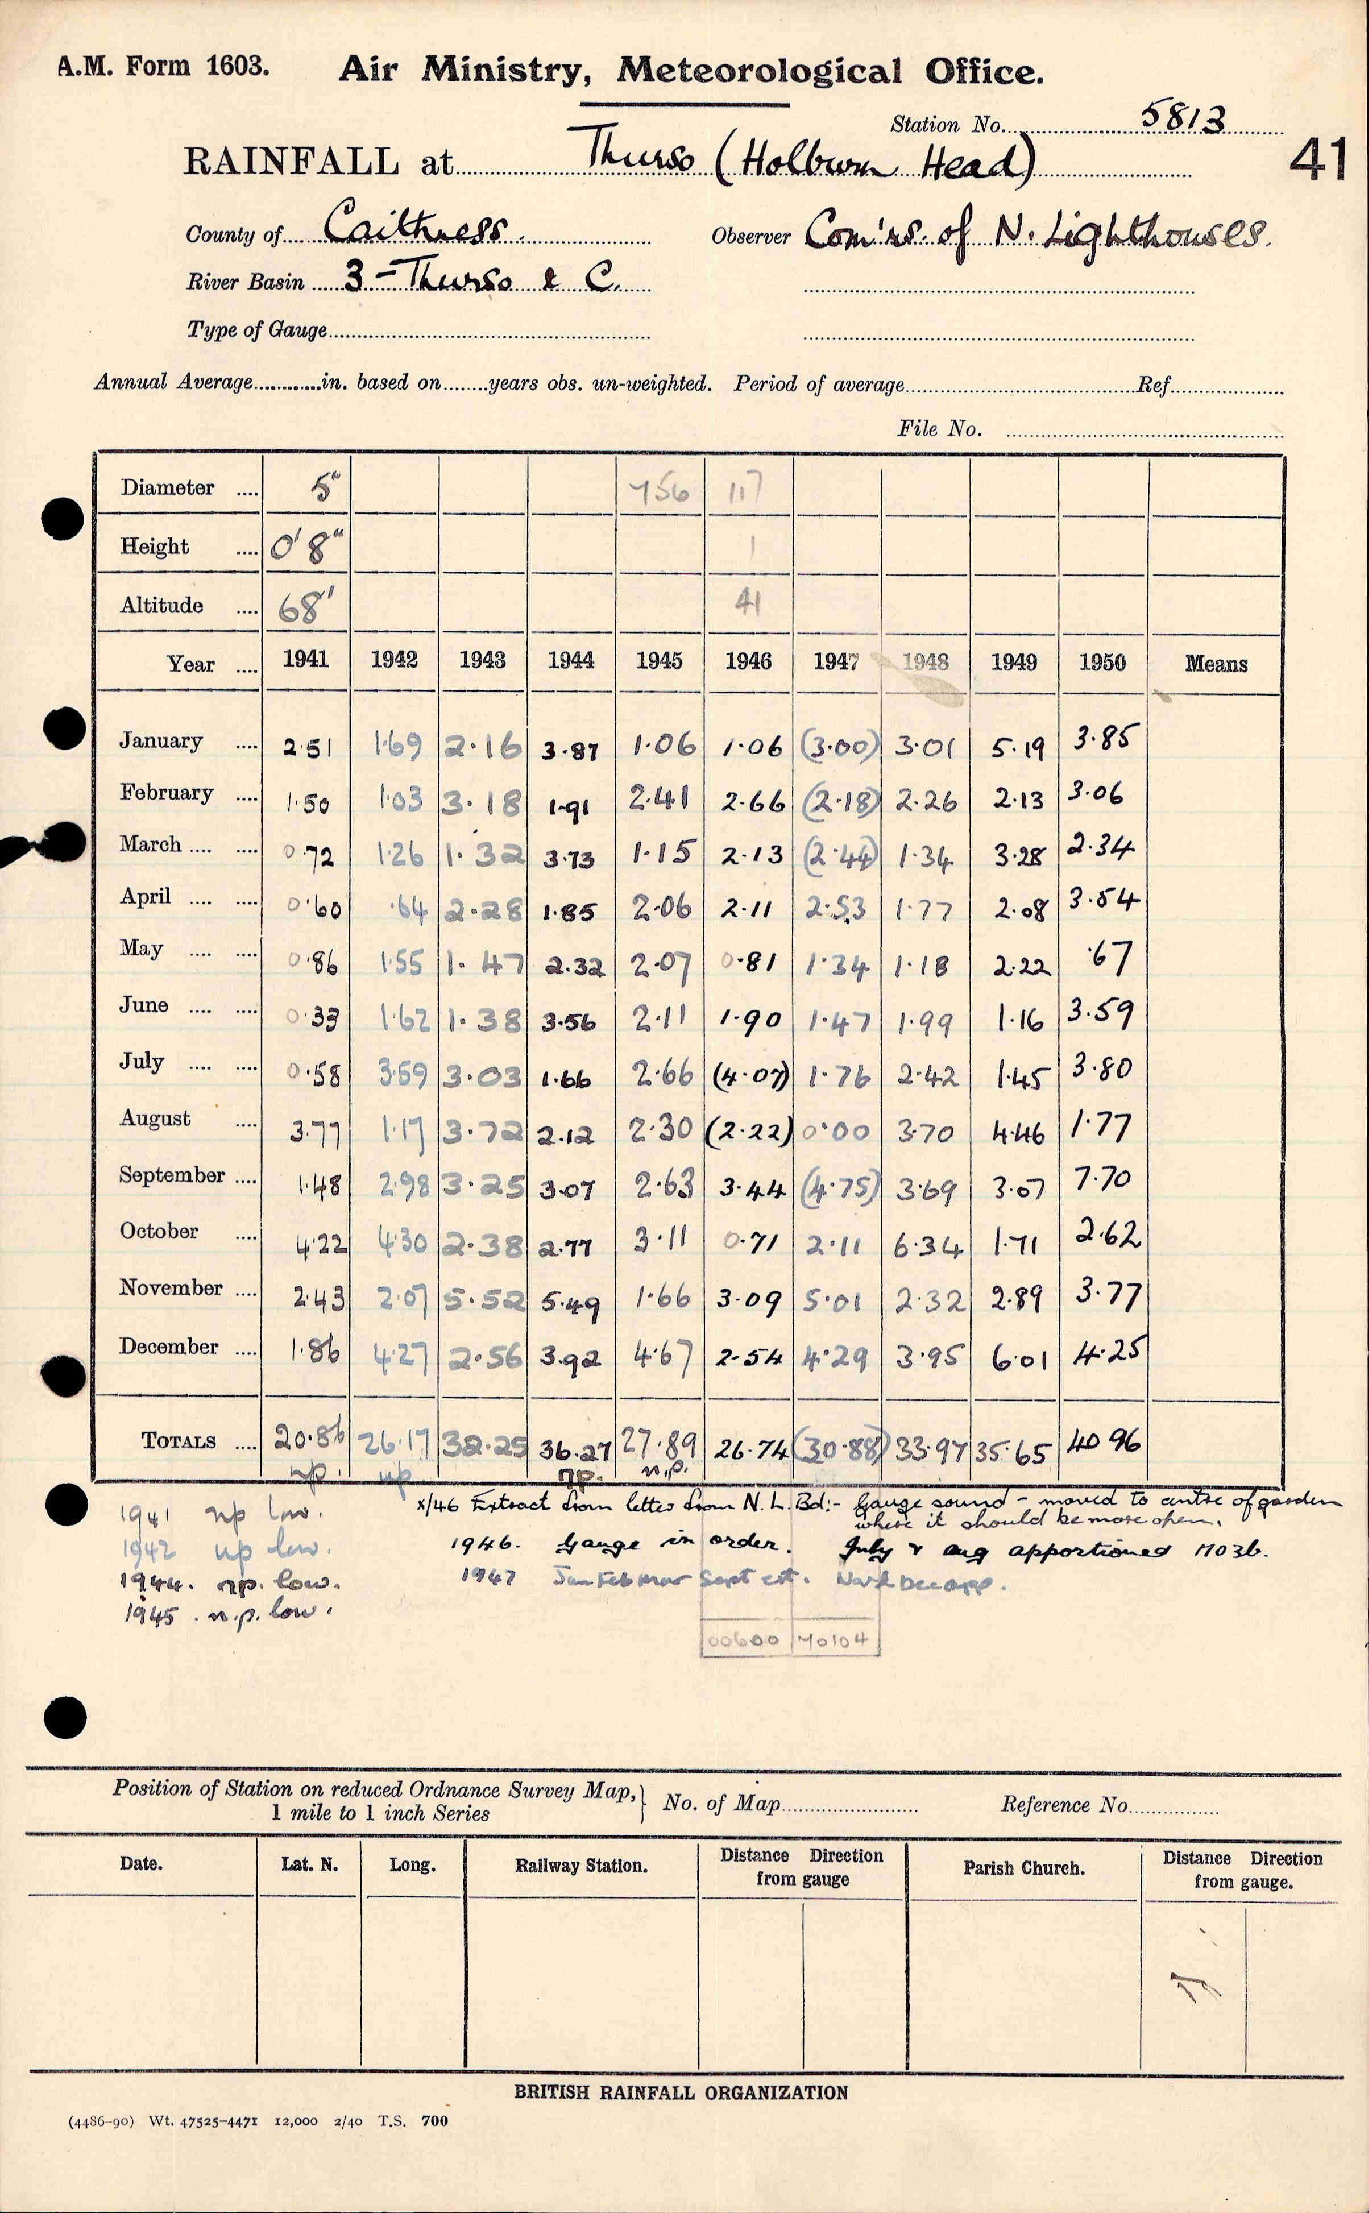 A.M. Form 1603. Air Ministry, Meteorological Office.
Station No. 5813
RAINFALL at Thurso (Holburn Head) 41
County of Caithness. Observer Com'rs. of N. Lighthouses.
River Basin 3 - Thurso & C.
Type of Gauge
Annual Average in. based on years obs. un-weighted. Period of average Ref.
File No.
Diameter 5" 756 117
Height 0' 8" 1
Altitude 68' 41
Year 1941 1942 1943 1944 1945 1946 1947 1948 1949 1950 Means
January 2.51 1.69 2.16 3.87 1.06 1.06 (3.00) 3.01 5.19 3.85
February 1.50 1.03 3.18 1.91 2.41 2.66 (2.18) 2.26 2.13 3.06
March 0.72 1.26 1.32 3.73 1.15 2.13 (2.44) 1.34 3.28 2.34
April 0.60 .64 2.28 1.85 2.06 2.11 2.53 1.77 2.08 3.54
May 0.86 1.55 1.47 2.32 2.07 0.81 1.34 1.18 2.22 .67
June 0.33 1.62 1.38 3.56 2.11 1.90 1.47 1.99 1.16 3.59
July 0.58 3.59 3.03 1.66 2.66 (4.07) 1.76 2.42 1.45 3.80
August 3.77 1.17 3.72 2.12 2.30 (2.22) 0.00 3.70 4.46 1.77
September 1.48 2.98 3.25 3.07 2.63 3.44 (4.75) 3.69 3.07 7.70
October 4.22 4.30 2.38 2.77 3.11 0.71 2.11 6.34 1.71 2.62
November 2.43 2.07 5.52 5.49 1.66 3.09 5.01 2.32 2.89 3.77
December 1.86 4.27 2.56 3.92 4.67 2.54 4.29 3.95 6.01 4.25
TOTALS 20.86 26.17 32.25 36.27 27.89 26.74 (30.88) 33.97 35.65 40.96
np. np np. n.p.
1941 np low. x/46 Extract from letter from N. L. Bd:- Gauge sound - moved to centre of garden
where it should be more open.
1942 np low. 1946. Gauge in order. July & Aug apportioned MO3b.
1944. np. low. 1947 Jan Feb Mar Sept est. Nov & Dec app.
1945. n.p. low.
00600 M0104
Position of Station on reduced Ordnance Survey Map, No. of Map Reference No.
1 mile to 1 inch Series
Date. Lat. N. Long. Railway Station. Distance Direction from gauge Parish Church. Distance Direction from gauge.
BRITISH RAINFALL ORGANIZATION
(4486-90) Wt. 47525-4471 12,000 2/40 T.S. 700